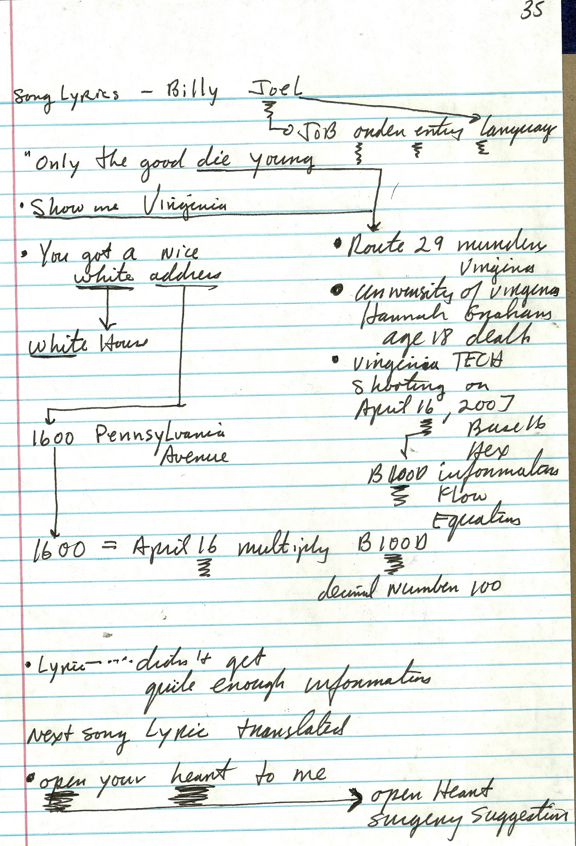 35
Song Lyrics - Billy Joel
JOB order entry language
"Only the good die young
• Show me Virginia
• You got a nice
white address
White House
1600 Pennsylvania
Avenue
• Route 29 murder
Virginia
• University of Virginia
Hannah Grahams
age 18 death
• Virginia TECH
Shooting on
April 16, 2007
Base 16
Hex
B100D information
Flow
Equations
1600 = April 16 multiply B100D
decimal number 100
• Lyric---... didn't get
quite enough information
Next song Lyric translated
• open your heart to me
open Heart
surgery suggestion